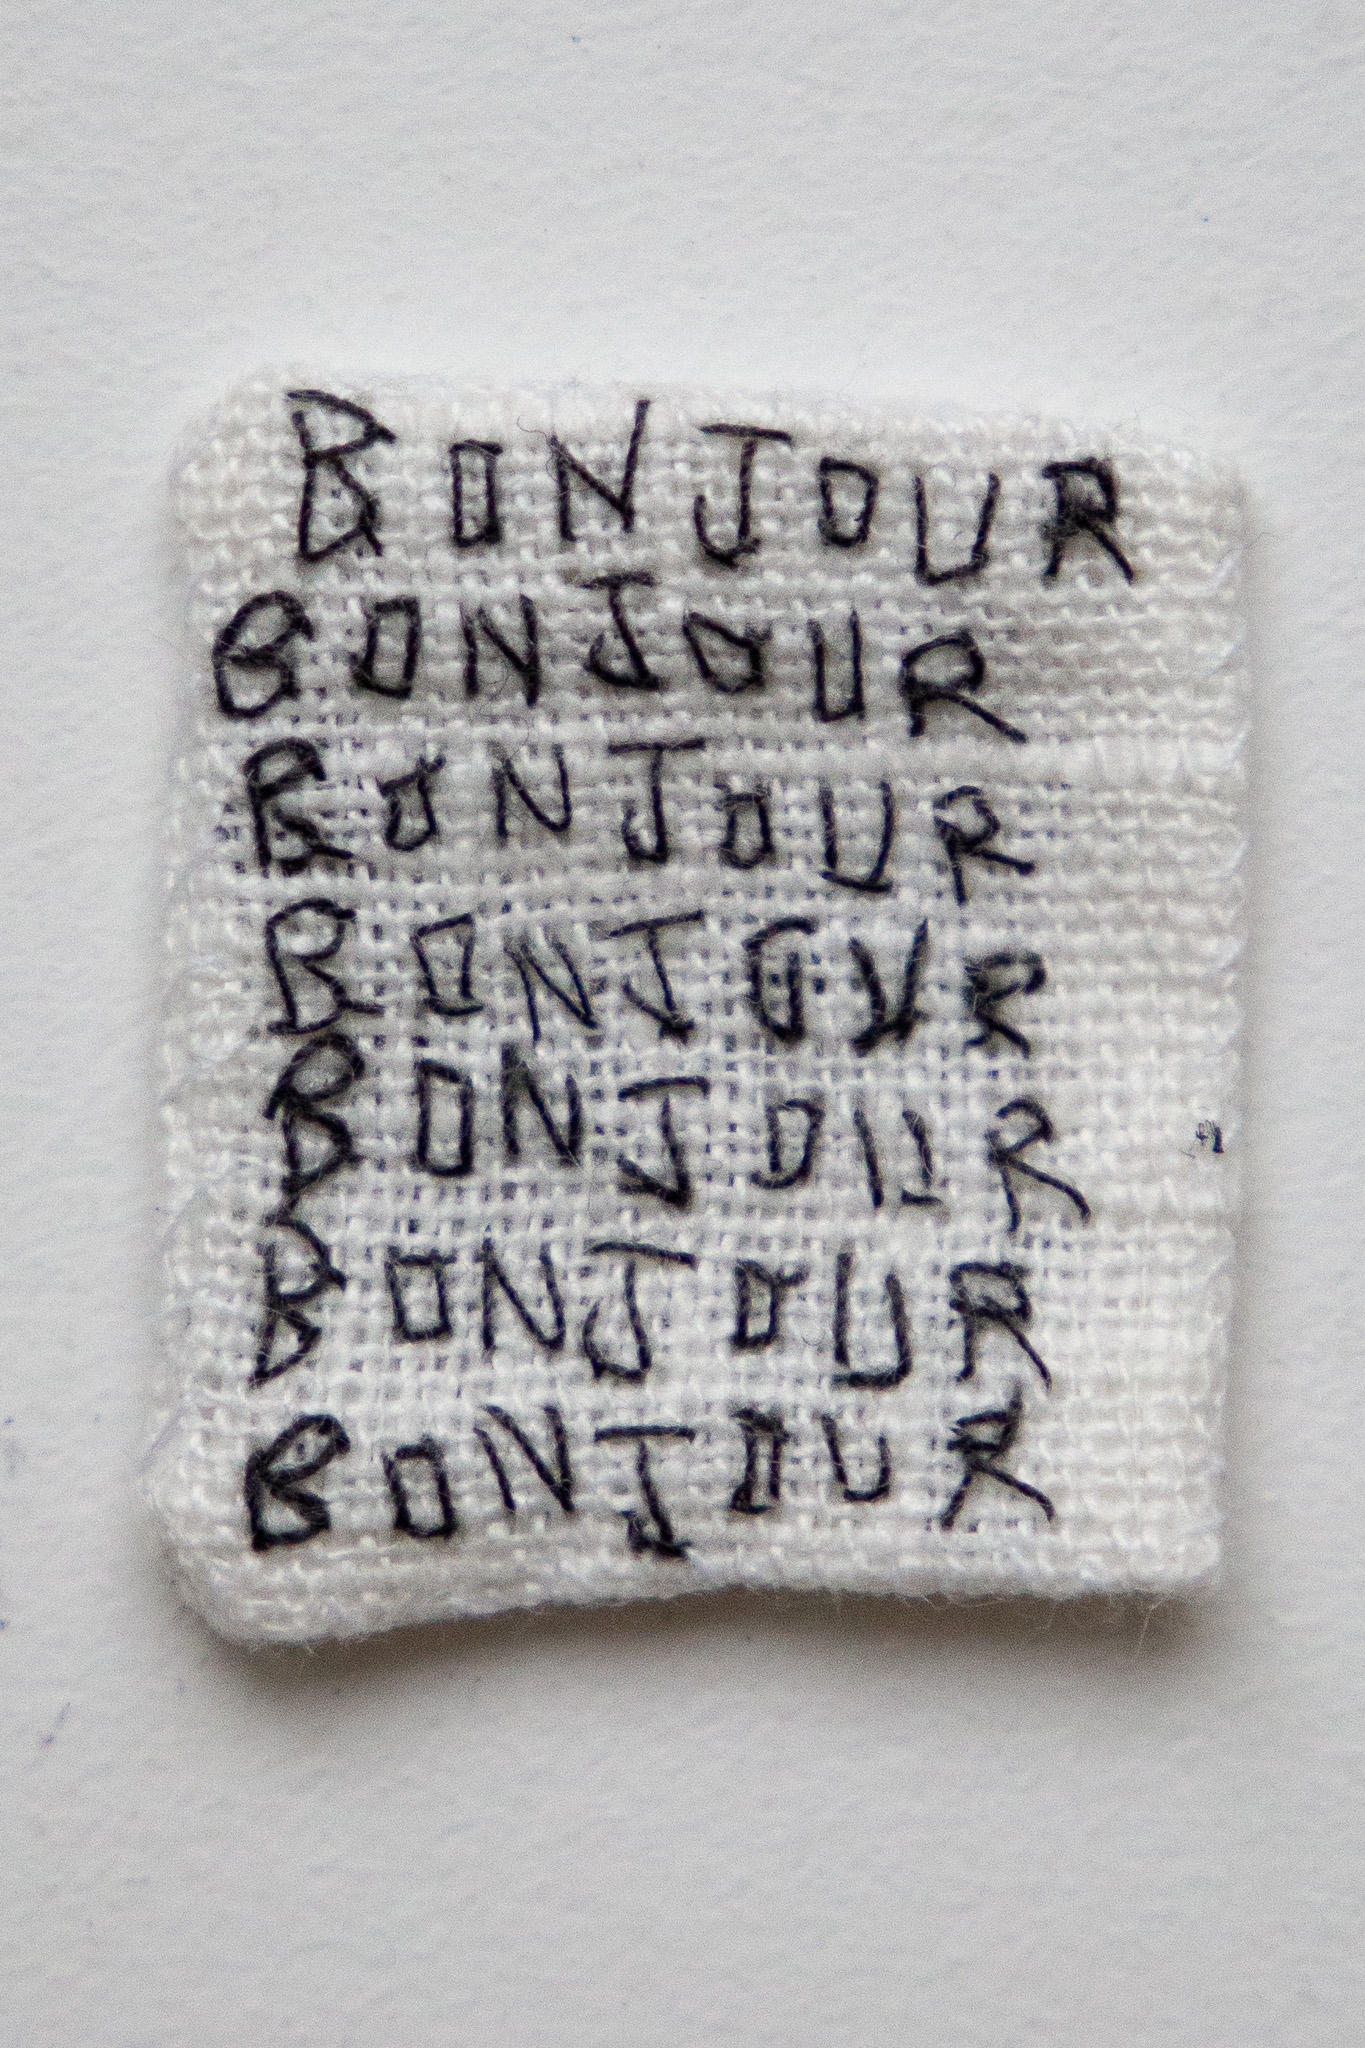 BONJOUR
BONJOUR
BONJOUR
BONJOUR
BONJOUR
BONJOUR
BONJOUR